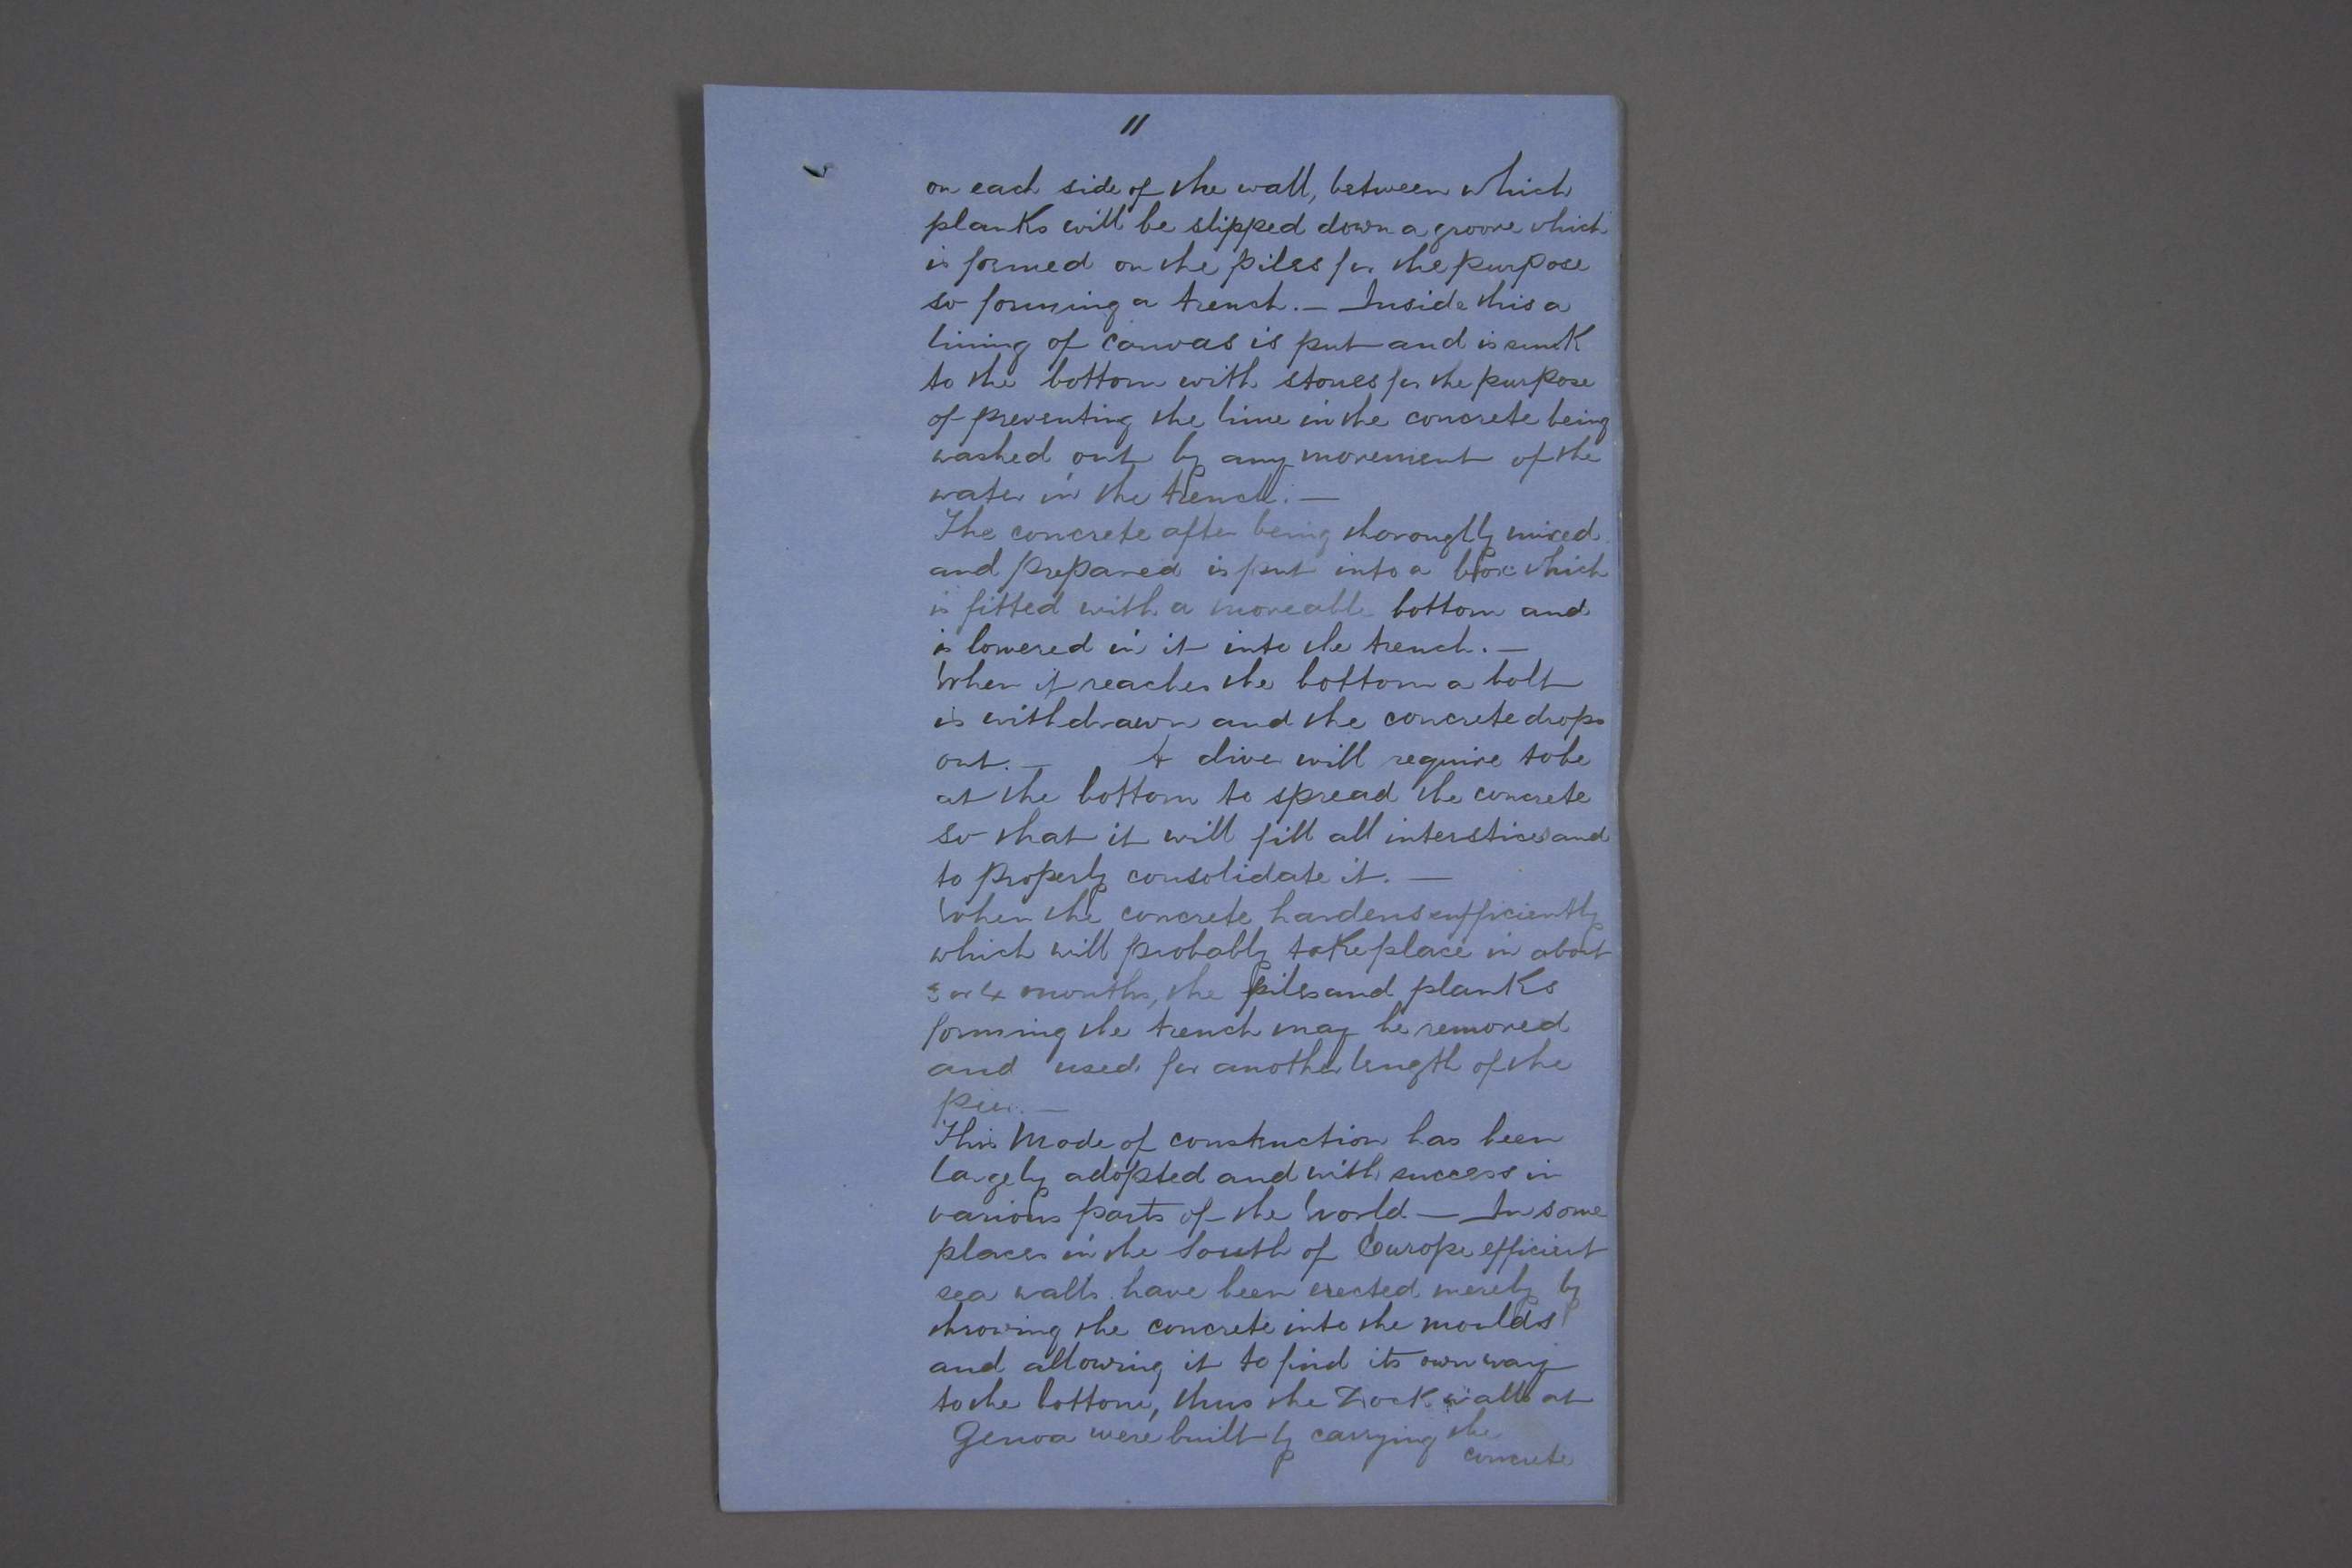 11
on each side of the wall, between which
planks will be slipped down a groove which
is formed on the piles for the purpose
so forming a trench. — Inside this a
lining of canvas is put and is sunk
to the bottom with stones for the purpose
of preventing the lime in the concrete being
washed out by any movement of the
water in the trench. —
The concrete after being thoroughly mixed
and prepared is put into a box which
is fitted with a moveable bottom and
is lowered in it into the trench. —
When it reaches the bottom a bolt
is withdrawn and the concrete drops
out. — A diver will require to be
at the bottom to spread the concrete
so that it will fill all interstices and
to properly consolidate it. —
When the concrete hardens sufficiently
which will probably take place in about
3 or 4 months, the piles and planks
forming the trench may be removed
and used for another length of the
pier. —
This mode of construction has been
largely adopted and with success in
various parts of the World — In some
places in the South of Europe efficient
sea walls have been erected merely by
throwing the concrete into the moulds
and allowing it to find its own way
to the bottom, thus the Dock walls at
Genoa were built by carrying the
concrete